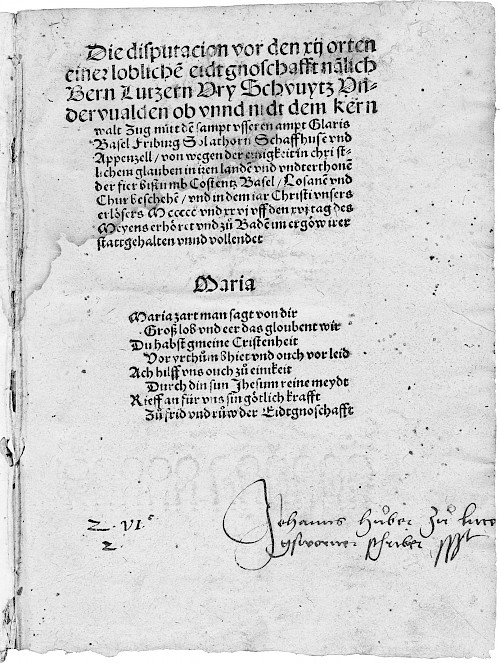 Die disputacion vor den xij orten
einer loblichē eidtgnoschafft nālich
Bern Lutzern Vry Schvuytz Vn-
dervualden ob vnnd nidt dem kern
walt Zug mitt dem sampt vsseren ampt Glaris
Basel Friburg Solathorn Schaffhuse vnd
Appenzell / von wegen der einigkeit in christ-
lichem glauben in iren landen vnd vnderthonē
der fier bistumb Costentz Basel / Losanē vnd
Chur beschehē / vnd in dem iar Christi vnsers
erlösers Mccccc vnd xxvj vff den xvj tag des
Meyens erhöret vnd zů Badē im ergöw irer
stattgehalten vnnd vollendet
Maria
Maria zart man sagt von dir
Groß lob vnd eer das gloubent wir
Du habst gmeine Cristenheit
Vor yrthům bhiet vnd ouch vor leid
Ach hilff vns ouch zů einikeit
Durch din sun Jhesum reine meydt
Rieff an für vns sin götlich krafft
Zů frid vnd růw der Eidtgnoschafft
Johanns Hůber zů Luce
gschworner schriber